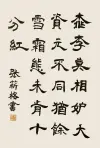 桃李莫相妒夭
姿元不同猶餘
雪霜態未肯十
分紅
張 書